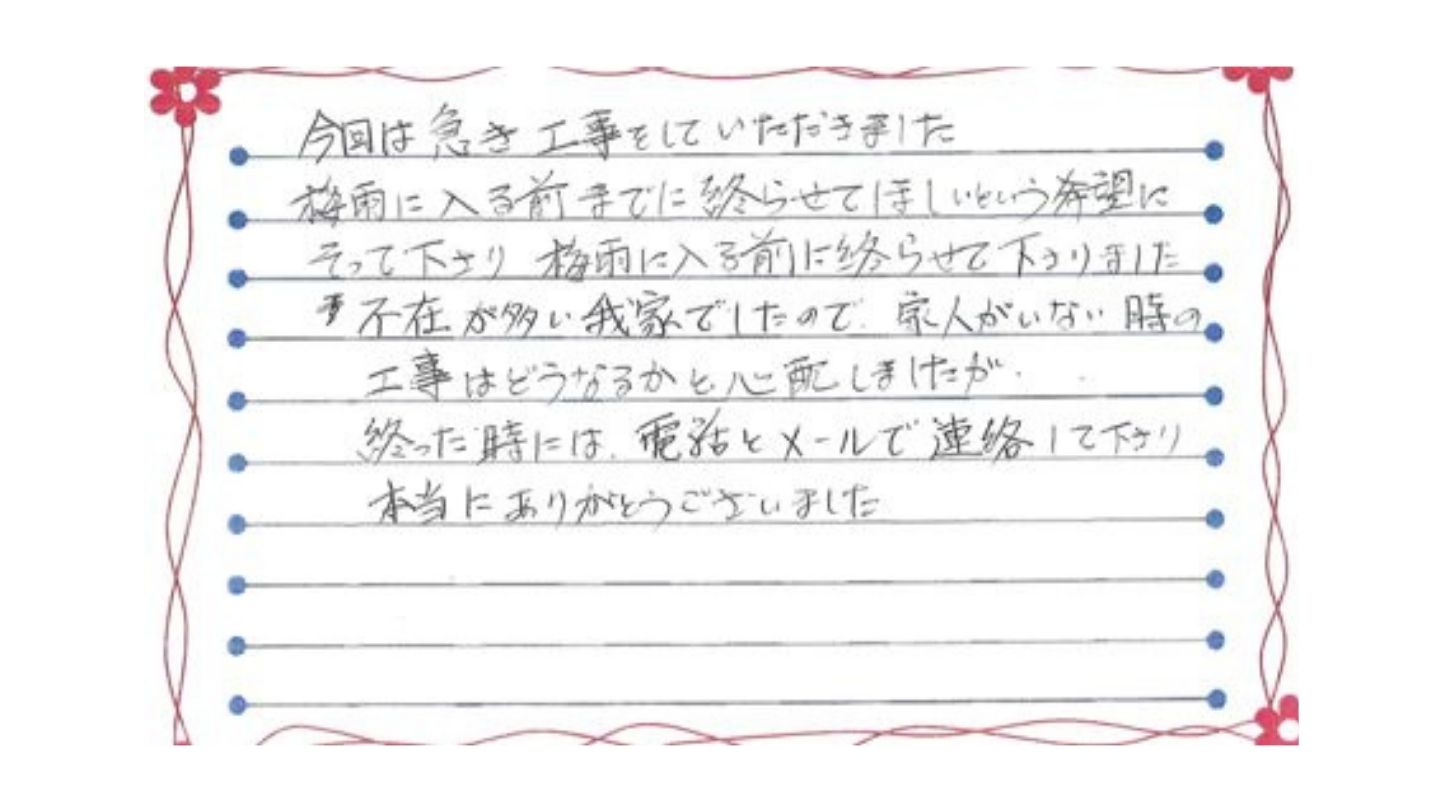 今回は急き工事をしていただきました
梅雨に入る前までに終らせてほしいという希望に
そって下さり 梅雨に入る前に終らせて下さりました
不在が多い我家でしたので、家人がいない時の
工事はどうなるかと心配しましたが、
終った時には、電話とメールで連絡して下さり
本当にありがとうございました